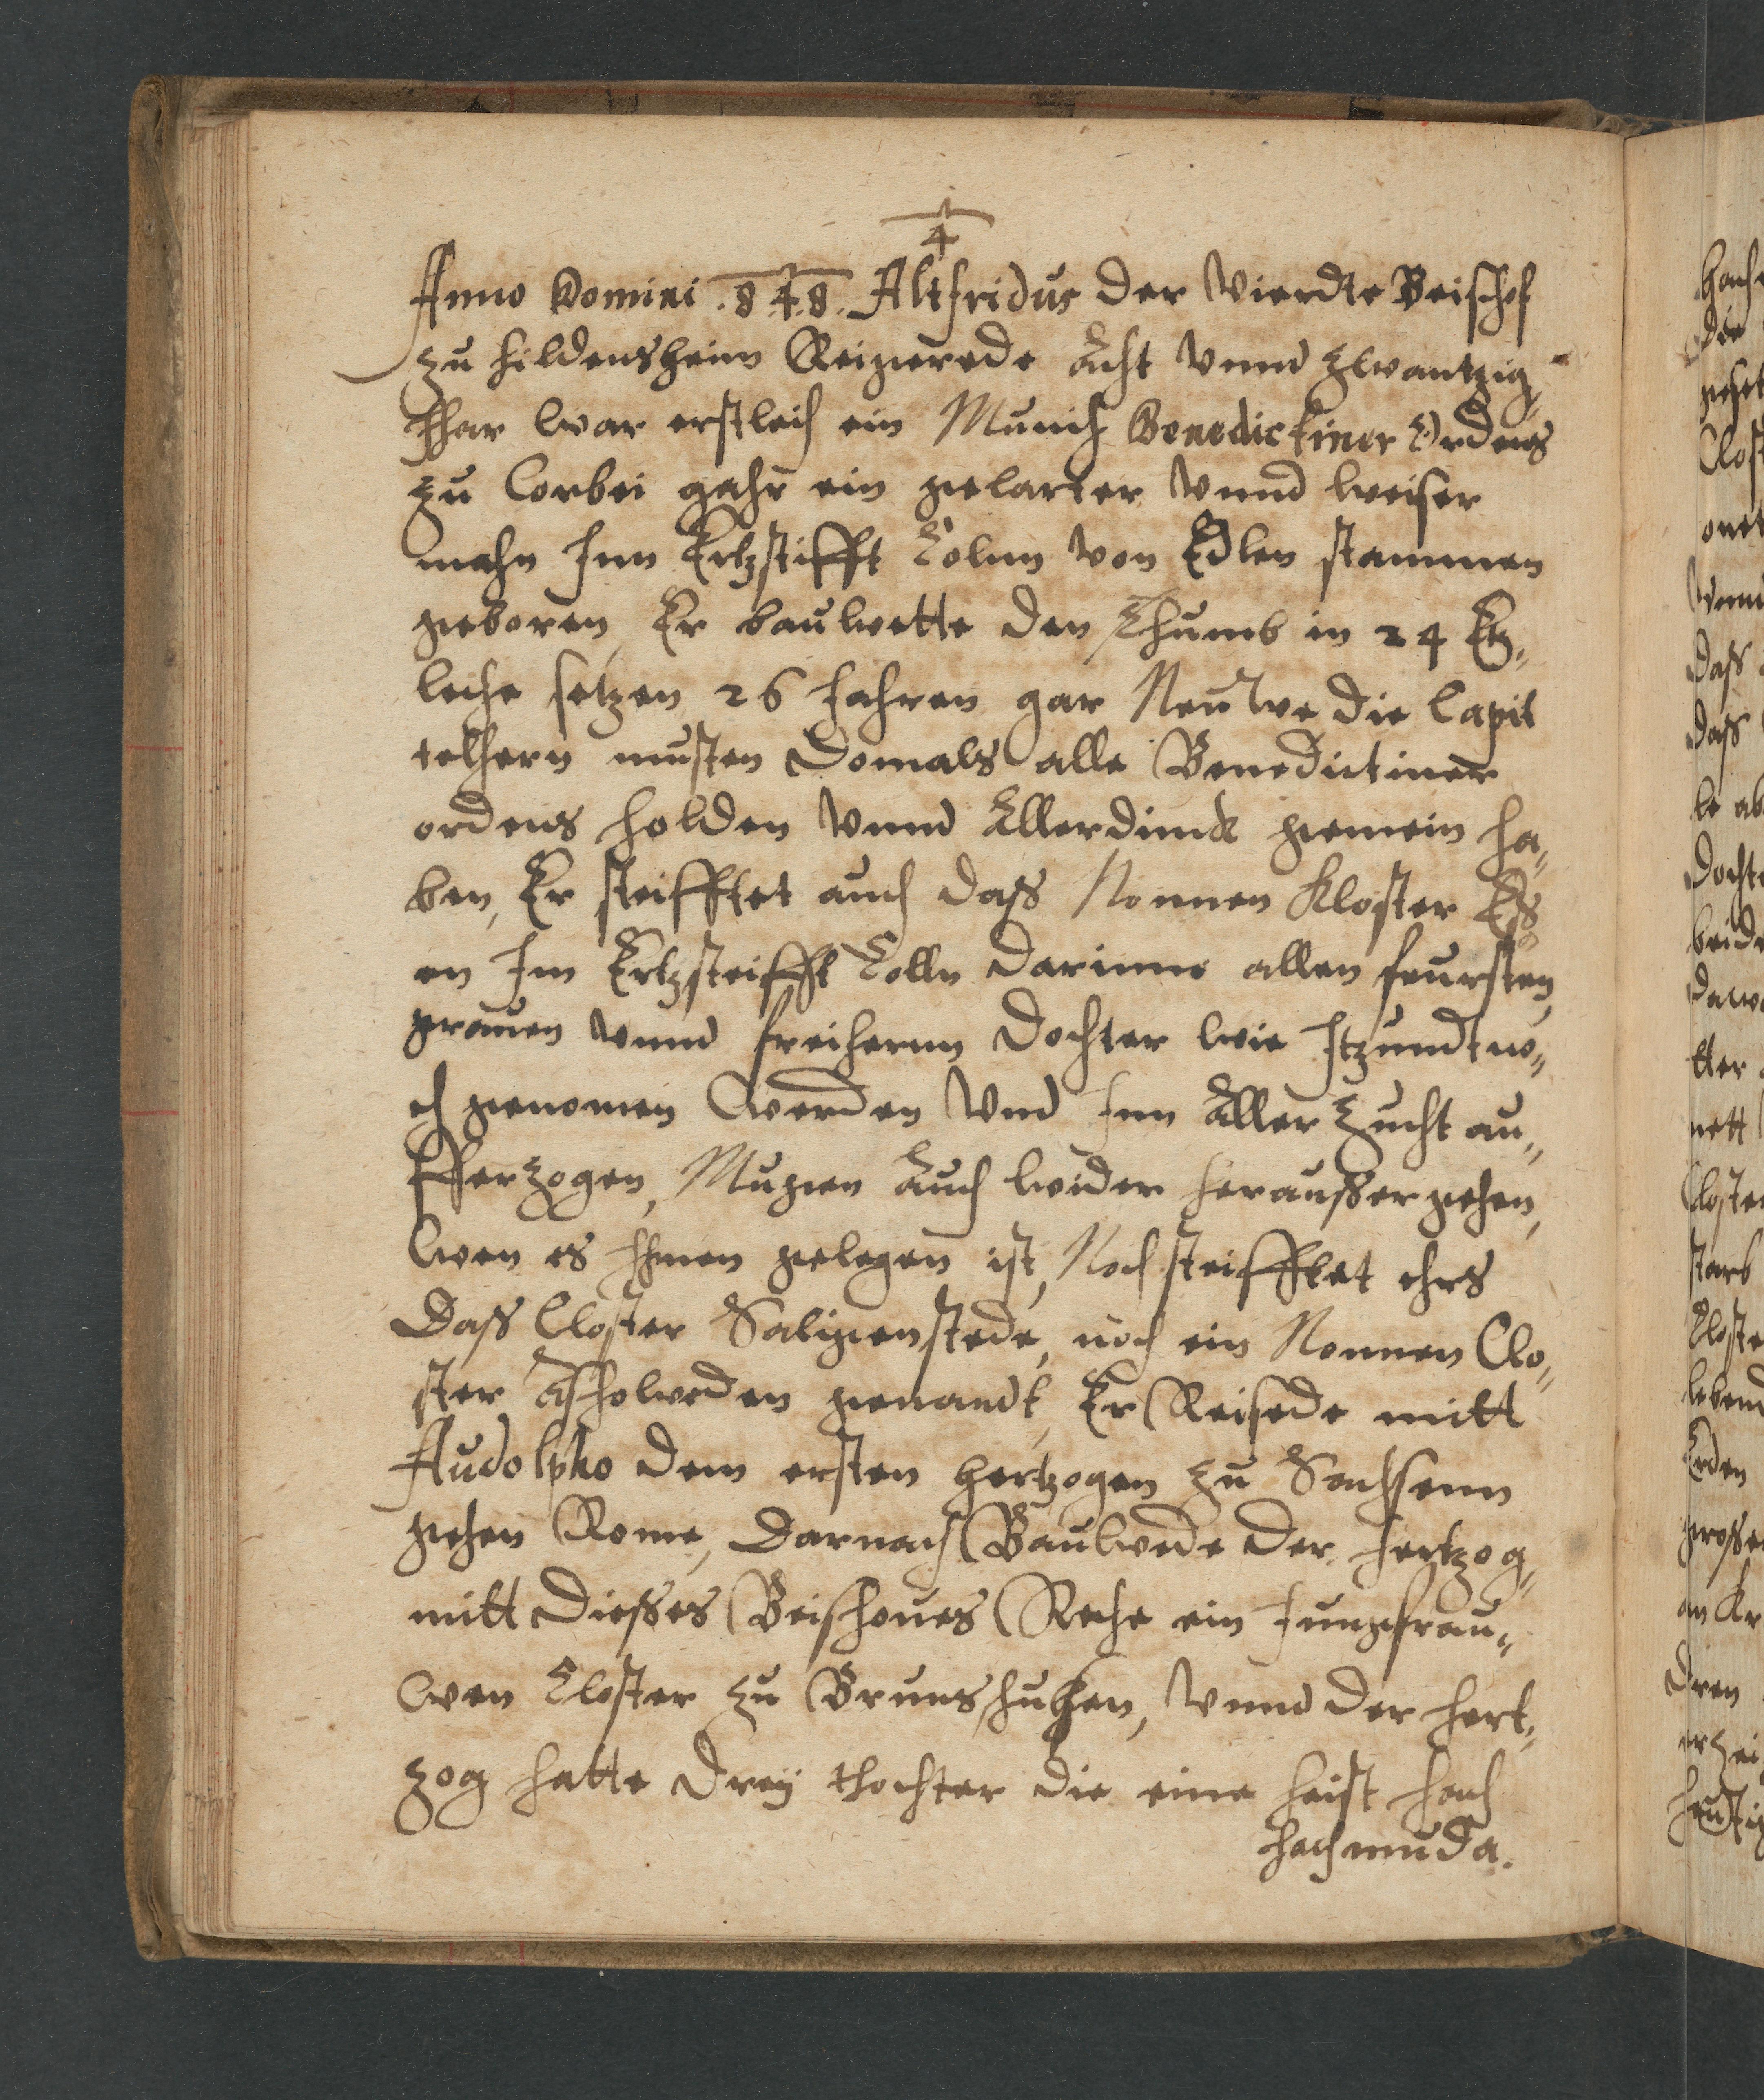 4
Anno Domini .848. Altfridus der Vierdte Beischof
zu Hildensheim Reigierede Acht Vnnd zwantzig
Jhar war erstleich ein Munich Benedictiner Ordens
zu Corbei gahr ein gelarter Vnnd weiser
mahn Inn Ertzstifft Cölnn von Edlen stammen
geboren, Er bauwette den Thumb in 24 Et,
leche setzen 26 Jahren gar Neuwe die Capit
telhern musten Domals alle Benedictiner
ordens holden Vnnd Allerdinck gemein ha,,
ben, Er steifftet auch daß Nonnen Kloster Eß
en Im Ertzsteifft Colln darinne allen feursten,
grauen Vnnd freihernn Dochter wie Itzundt no,,
ch genomen werden Vnd Inn Aller Zucht au,,
fferzogen, Mugen Auch wider heraußer gehen,
wen es Ihnen gelegen ist, Noch steifftet ehrs
Daß Closter Saligenstede, noch ein Nonnen Clo,,
ster Asholweden genandt, Er Reisede mitt
Audolpho dem ersten Hertzogen zu Sachsenn
gehen Rome, Darnach Bauwede der Hertzog,
mitt dießes Beischoues Rethe ein Jungfrau,,
wen Closter zu Brunshußen, Vnnd der Hert,,
zog hatte drey thochter die eine heist Hach
Hachmuda.